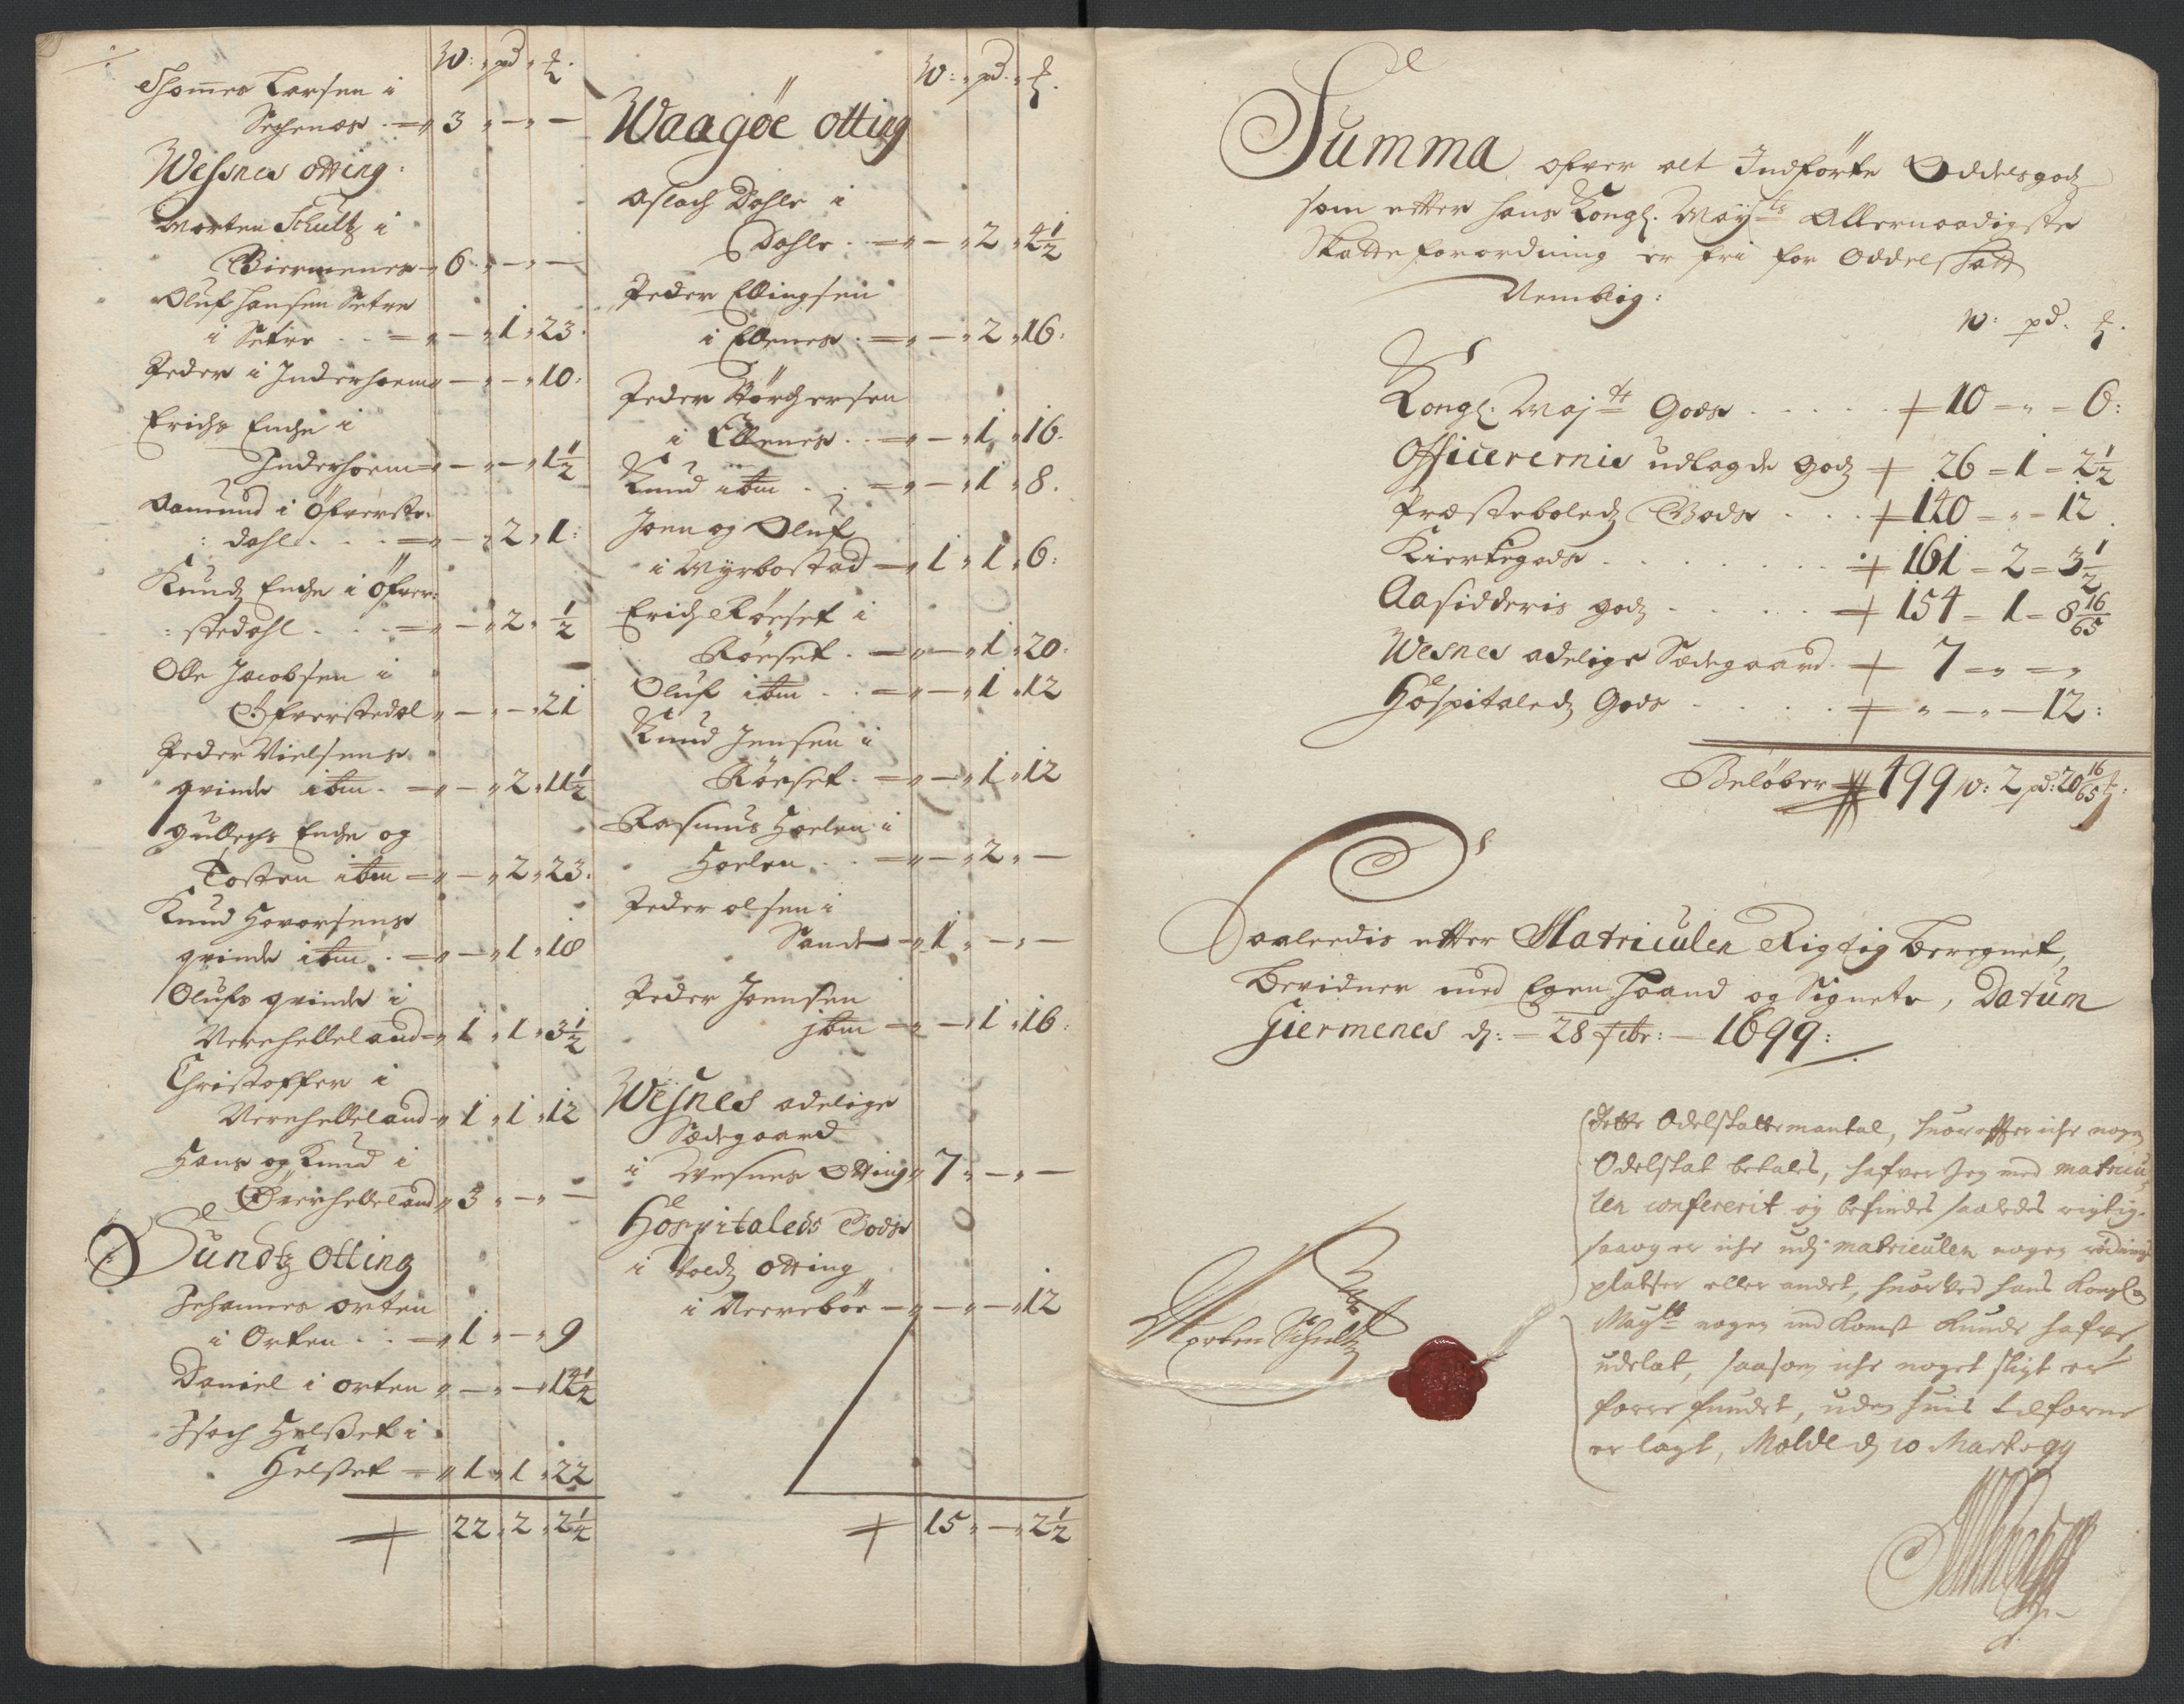 W: pd ℔.
Thommes Larsen i
Sechenæs . = 3 " — " —
Wessnes otting:
Morten Schultz i
Giermenes - 6 " — " —
Oluf Hansen Setre
i Setre . . = " — " 1 " 23.
Peder i Inderhoem " — " — " 10:
Erichs Enche i
Inderhoem = " — " — " 1½
Aamund i Ofverste-
: dahl . . . = " — " 2 " 1:
Knudz Enche i Öfver:
: stedahl . . . = " — " 2 " ½
Olle Jacobsen i
Öfverstedal " — " — " 21
Peder Nielsens
qvinde ibm . = " — " 2 " 11½
Gullechs Enche og
Tosten ibm = " — " 2 " 23.
Knud Hovorsens
qvinde ibm . = " — " 1 " 18
Olufs qvinde i
Nerehelleland = " 1 " 1 " 3½
Christoffer i
Nerehelleland " 1 " 1 " 12
Hans og Knud i
Øverhelleland " 3 " — " —
Sundtz Otting
Johannes orten
i Orten . . = " 1 " — " 9
Daniel i orten " — " — " 14½
Isach Helsset i
Helsset = " 1 " 1 " 22
+ 22 " 2 " 2½
W: pd. ℔.
Waagöe otting
Aslach Dahle i
Dahle . = " — " 2 " 4½
Peder Ellingsen
i Ellenes . = " — " 2 " 16:
Peder Störchersen
i Ellenes . . = " — " 1 " 16.
Knud ibm . . = " — " 1 " 8.
Joen og Oluf
i Myrbostad — " 1 " 1 " 6:
Erich Röeset i
Röeset . = " — " 1 " 20.
Oluf ibm . . = " — " 1 " 12
Knud Jensen i
Röeset . = " — " 1 " 12
Rasmus Hoelen i
Hoelen . . = " — " 2 " —
Peder olsen i
Sande = " 1 " — " —
Peder Joensen
ibm = " — " 1 " 16:
Wesnes adelige
Sædegaard
i Wesnes Otting " 7 " — " —
Hospitaleds Gods
i Voldz otting
i Nerreböe — " — " — " 12
+ 15 " — " 2½
Summa ofver alt Indförte Oddelsgodz
som etter hans Kongl. Mayts Allernaadigste
Skatte forordning er fri for Oddelskatt
Nemblig:
W: pd. ℔.
Kongl. Majts Gods . . . . . + 10 — " — 6:
Officerernis udlagde godz + 26 — 1 — 2½
Præsteboledz Gods . . . + 120 — " — 12.
Kierkegods . . . . . . . . + 161 — 2 — 3½
Aasidderis godz . . . . . + 154 — 1 — 8 16/65
Wesnes adelige Sædegaard . + 7 — " — "
Hospitaledz Gods . . . . + " — " — 12:
Belöber + 499 W: 2 pd: 20 16/65 ℔:
Saaledis etter Matriculen Rigtig beregnet,
bevidner med Egen Haand og Signete, Datum
Giermenes d: 28 febr: — 1699:
Morten Schultz
Dette Odelskattemantal, huorefter iche nogen
Odelskat betales, hafver jeg med matricu
len confererit og befindes saaledes rigtig.
saa og er iche udj matriculen nogen rödnings
pladtser eller andet, huorved hans Kongl.
Mayts nogen ind komst kunde hafve
udelat, saasom iche noget sligt er
forre fundet, uden huis tilforne
er lagt, Molde d. 10 Marts 99